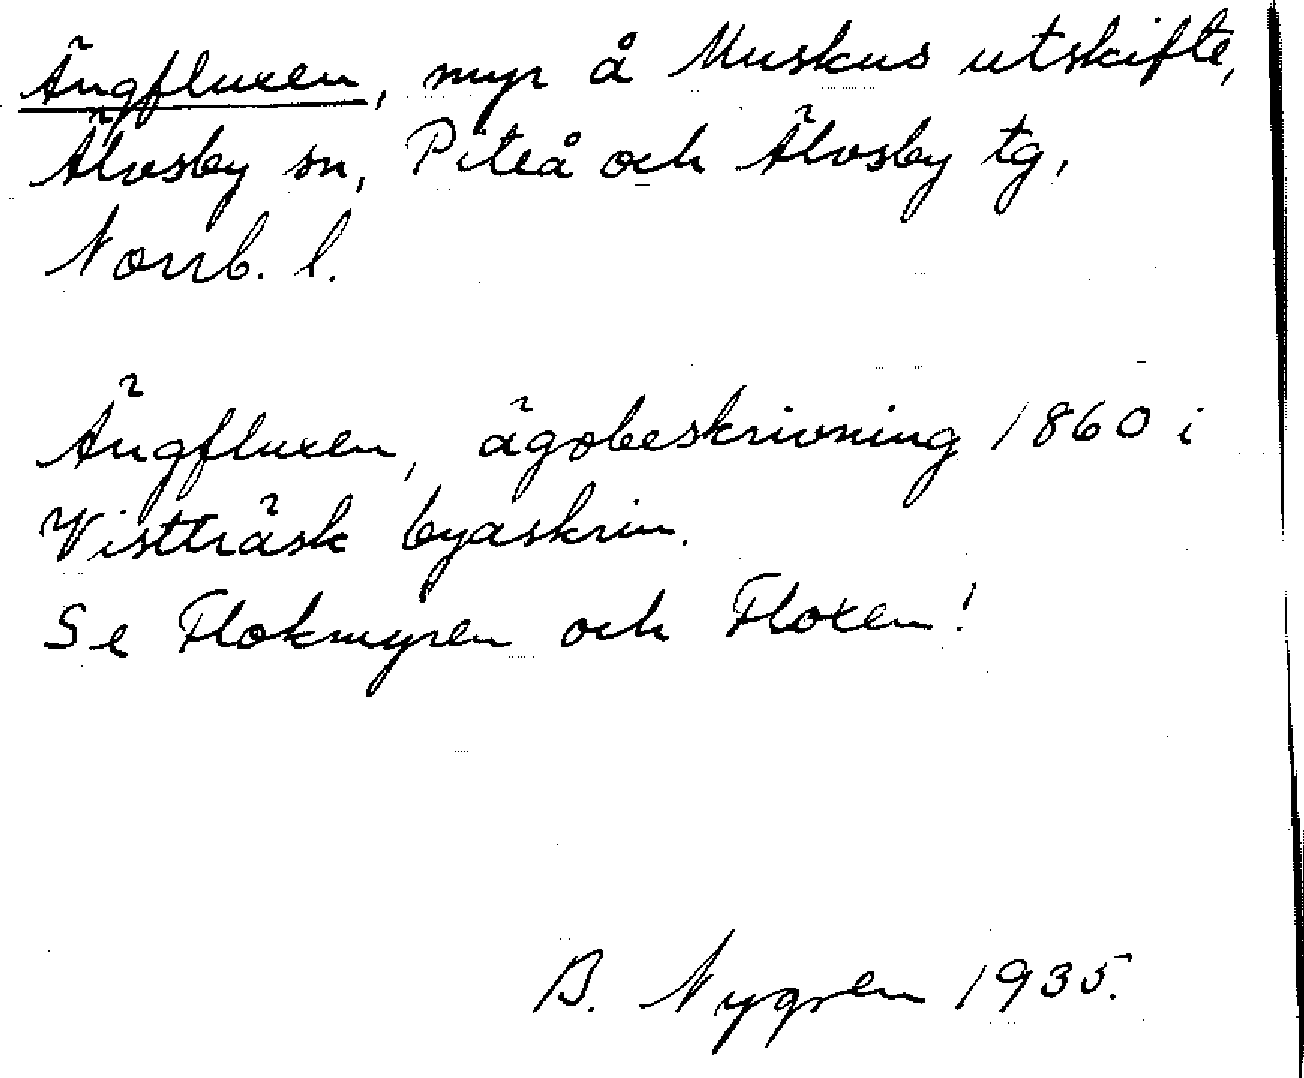 Ängfluxen, myr å Muskus utskifte,
Älvsby sn, Piteå och Älvsby tg,
Norrb. l.
Ängfluxen, ägobeskrivning 1860 i
Vistträsk byaskrin.
Se Flokmyren och Floxen!
B. Nygren 1935.